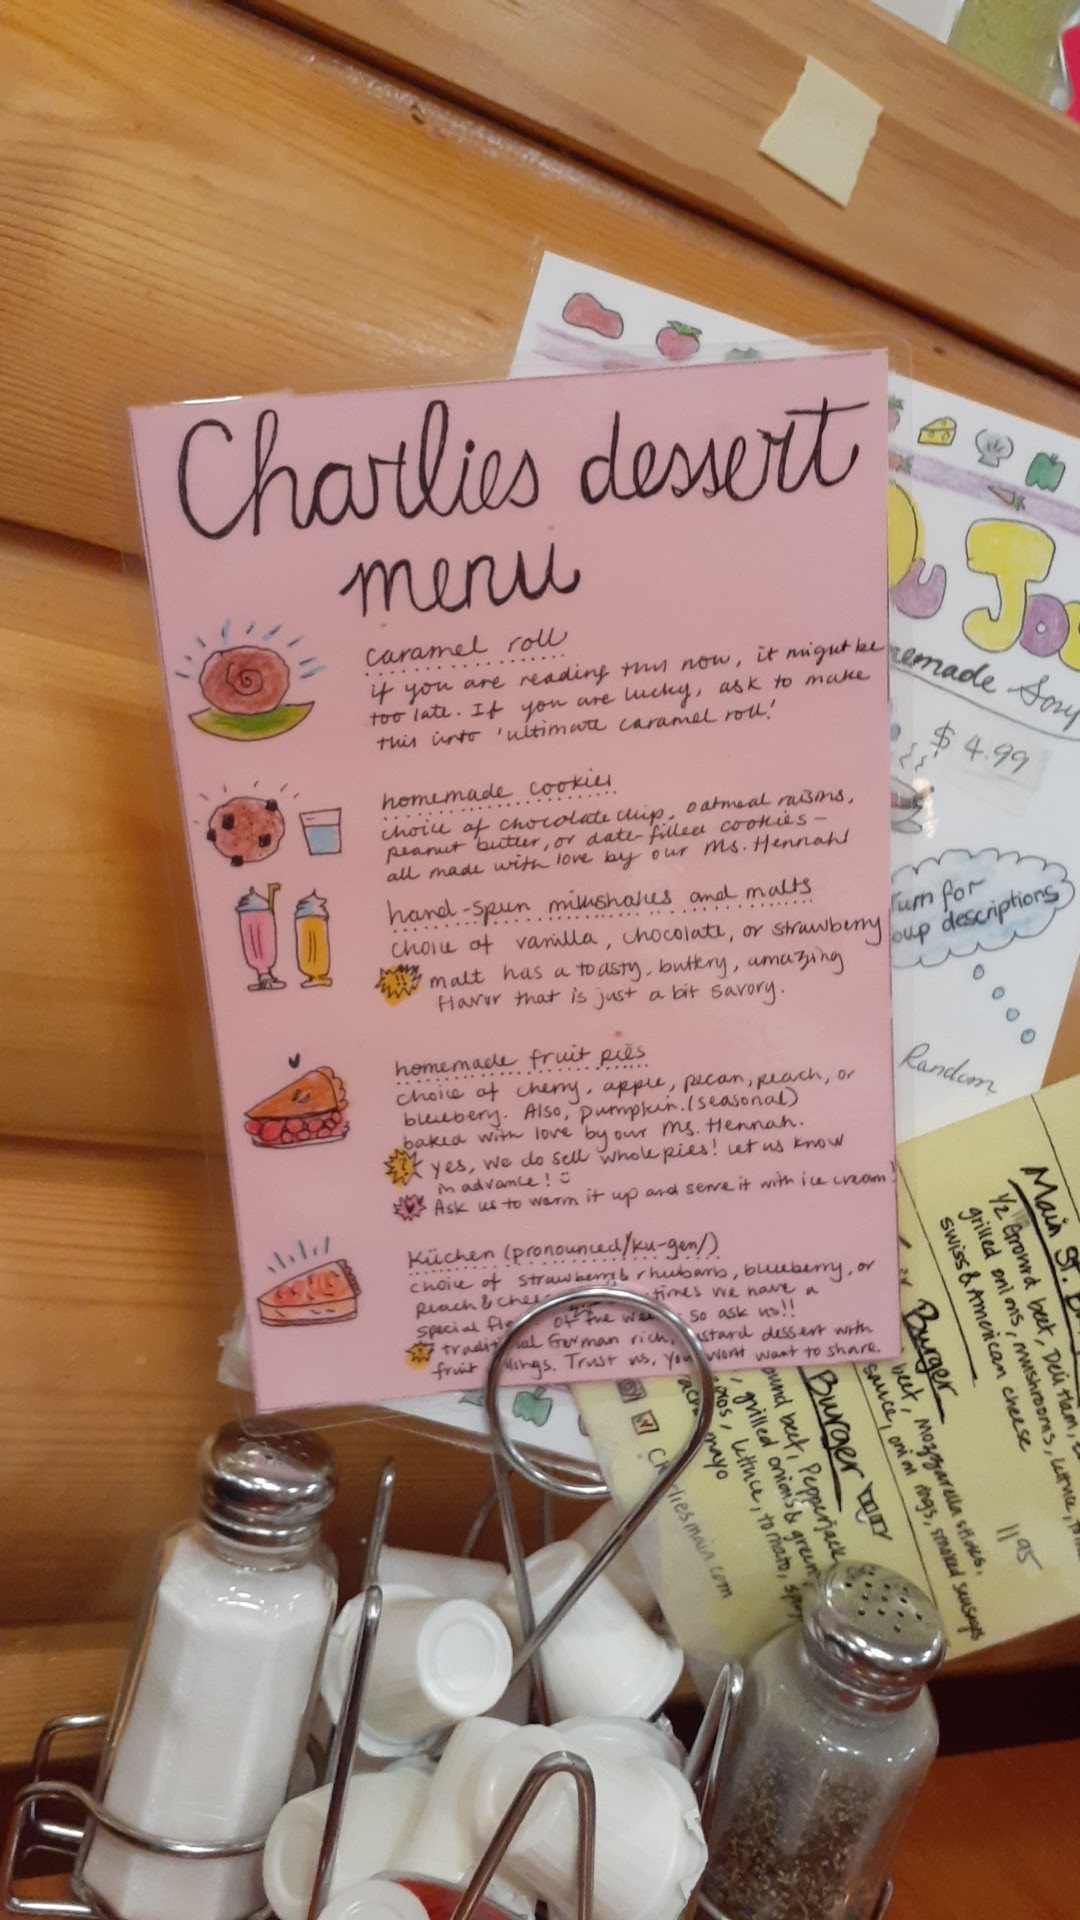 Charlies dessert
menu
caramel roll
if you are reading this now, it might be
too late. If you are lucky, ask to make
this into 'ultimate caramel roll!'
homemade cookies
choice of chocolate chip, oatmeal raisins,
peanut butter, or date-filled cookies -
all made with love by our Ms. Hennah!
hand-spun milkshakes and malts
choice of vanilla, chocolate, or strawberry
!! malt has a toasty, buttery, amazing
flavor that is just a bit savory.
homemade fruit pies
choice of cherry, apple, pecan, peach, or
blueberry. Also, pumpkin. (seasonal)
baked with love by our Ms. Hennah.
? yes, we do sell whole pies! Let us know
in advance! :)
Ask us to warm it up and serve it with ice cream!
Küchen (pronounced/ku-gen/)
choice of strawberry & rhubarb, blueberry, or
Peach & times we have a
special of the so ask us!!
German rich, dessert with
fruit Trust us, you wont want to share.
$ 4.99
Turn for
descriptions
Random
Main St.
1/2 Ground beef, Deli Ham,
grilled onions, mushrooms, lettuce,
swiss & American cheese
Burger
beef, mozzarella sticks,
sauce, onion rings, smoked sausages
11 95
Burger
beef, Pepperjack
grilled onions & green
lettuce, tomato,
mayo